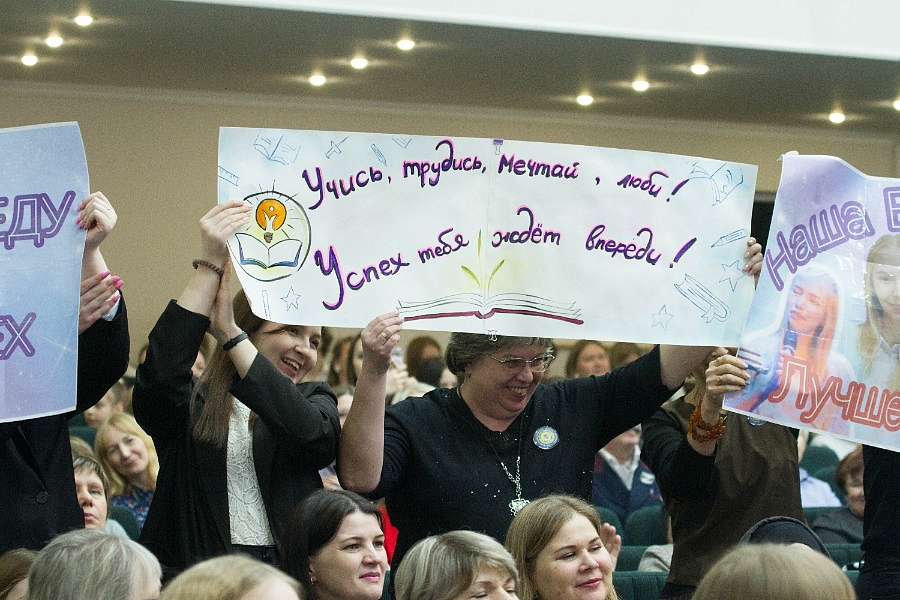 ЕДУ
ЕХ
Учись, трудись, мечтай, люби!
Успех тебя ждёт впереди!
Наша
Лучше